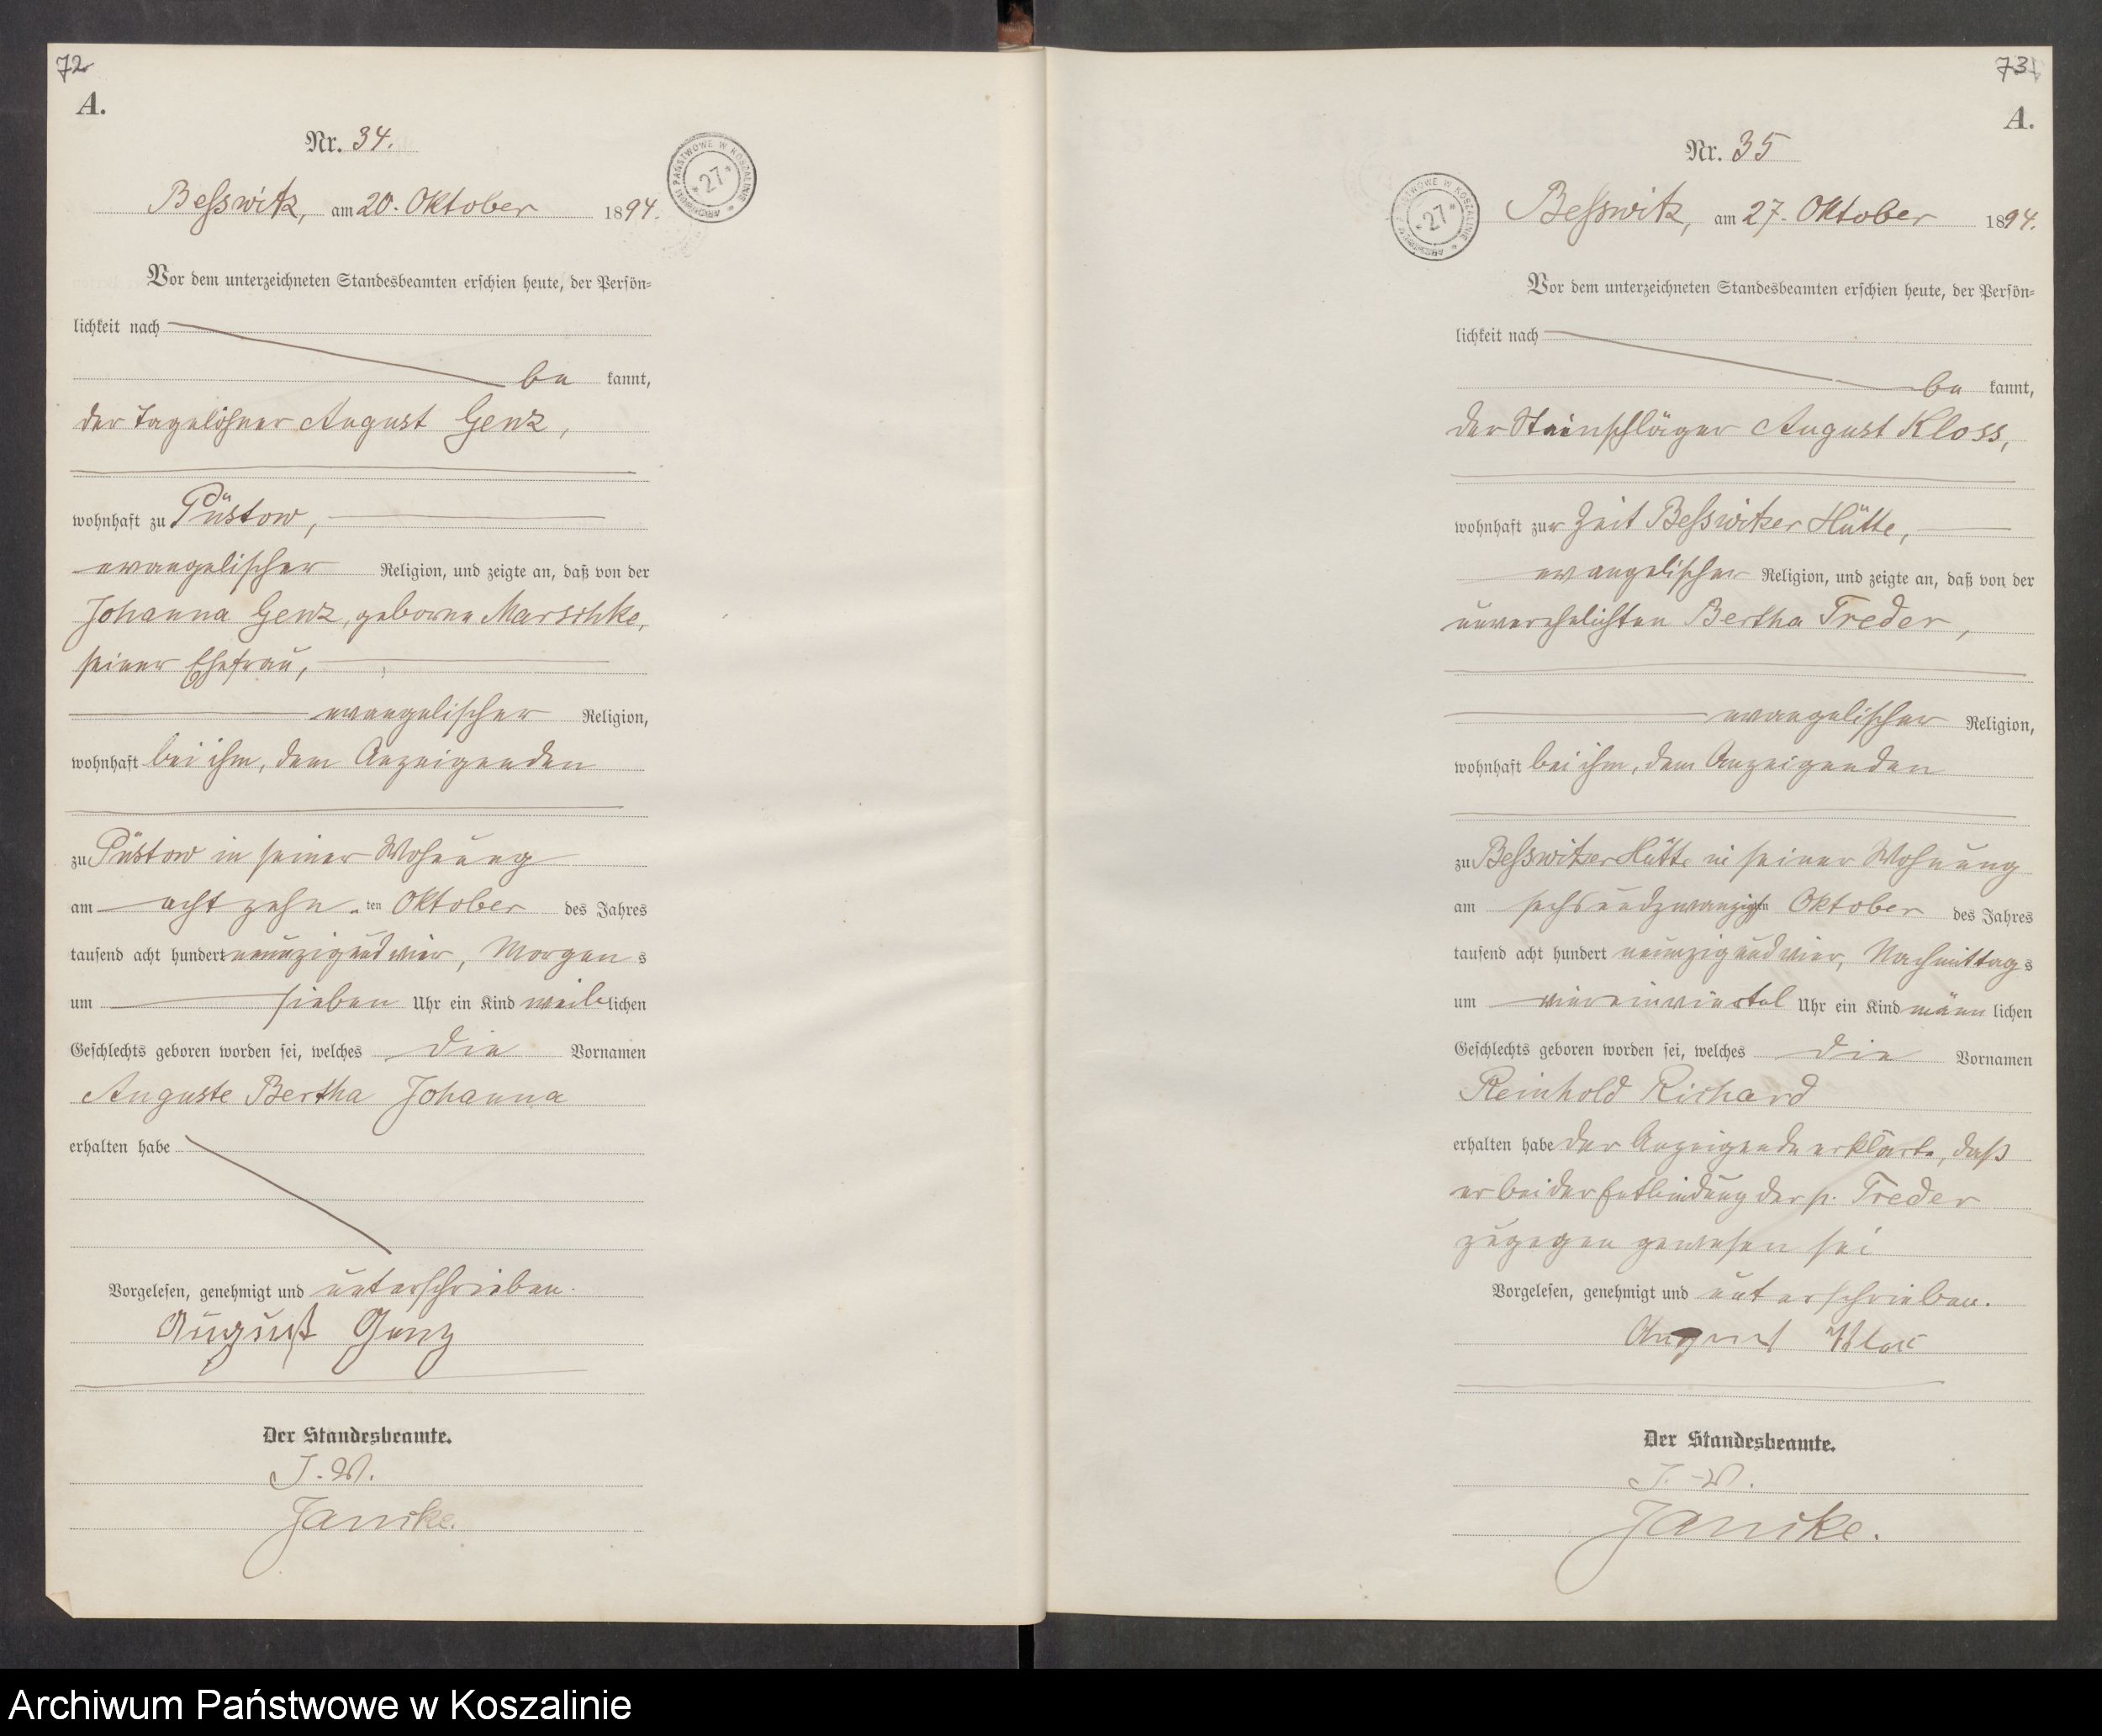 72
A.
Nr. 34.
ARCHIWUM PAŃSTWOWE W KOSZALINIE * 27 *
Beßwitz, am 20. Oktober 1894.
Vor dem unterzeichneten Standesbeamten erschien heute, der Persön-
lichkeit nach
be kannt,
der Tagelöhner August Genz,
wohnhaft zu Püstow,
evangelischer Religion, und zeigte an, daß von der
Johanna Genz, geborne Marschke,
seiner Ehefrau,
evangelischer Religion,
wohnhaft bei ihm, dem Anzeigenden
zu Püstow in seiner Wohnung
am achtzehn ten Oktober des Jahres
tausend acht hundert neunzig und vier, Morgen s
um sieben Uhr ein Kind weib lichen
Geschlechts geboren worden sei, welches die Vornamen
Auguste Bertha Johanna
erhalten habe
Vorgelesen, genehmigt und unterschrieben.
August Genz
Der Standesbeamte.
J. V.
Janike.
73
A.
Nr. 35
ARCHIWUM PAŃSTWOWE W KOSZALINIE * 27 *
Beßwitz, am 27. Oktober 1894.
Vor dem unterzeichneten Standesbeamten erschien heute, der Persön-
lichkeit nach
be kannt,
der Steinschläger August Kloss,
wohnhaft zur Zeit Beßwitzer Hütte,
evangelischer Religion, und zeigte an, daß von der
unverehelichten Bertha Treder,
evangelischer Religion,
wohnhaft bei ihm, dem Anzeigenden
zu Beßwitzer Hütte in seiner Wohnung
am sechsundzwanzigsten Oktober des Jahres
tausend acht hundert neunzig und vier, Nachmittag s
um viereinviertel Uhr ein Kind männ lichen
Geschlechts geboren worden sei, welches die Vornamen
Reinhold Richard
erhalten habe der Anzeigende erklärte, daß
er bei der Entbindung der p. Treder
zugegen gewesen sei
Vorgelesen, genehmigt und unterschrieben.
August Kloss
Der Standesbeamte.
J. V.
Janike.
Archiwum Państwowe w Koszalinie